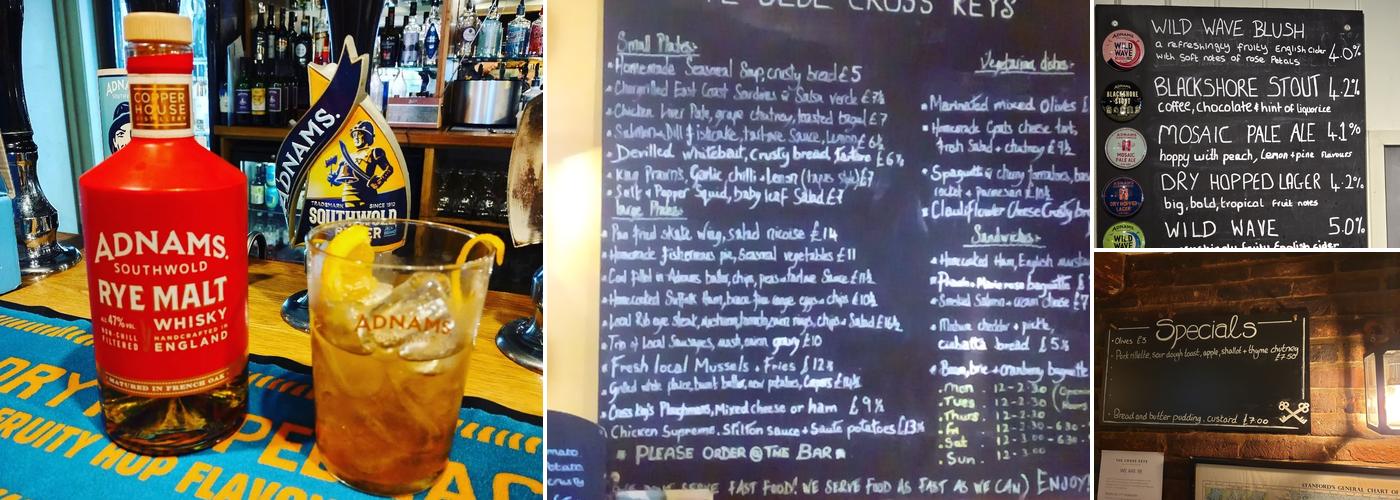 COPPER
HOUSE
ADNAMS.
SOUTHWOLD
RYE MALT
WHISKY
ALC 47% VOL.
NON-CHILL
FILTERED
HANDCRAFTED IN
ENGLAND
MATURED IN FRENCH OAK
ADNAMS.
TRADEMARK SINCE 1872
SOUTHWOLD
ADNAMS
DRY
FRUITY HOP FLAVOU
YE OLDE CROSS KEYS
Small Plates:
Homemade Seasonal Soup, crusty bread £5
Chargrilled East Coast Sardines Salsa verde £7½
Chicken liver Pate, grape chutney, toasted bagel £7
Salmon + Dill fishcake, tartare Sauce, Lemon £6½
Devilled whitebait, Crusty bread, tartare £6½
King Prawns, Garlic chilli + Lemon £7
Salt + Pepper Squid, baby leaf Salad £7
Large Plates:
Pan fried skate wing, salad nicoise £14
Homemade fishermans pie, Seasonal vegetables £11
Cod filled in Adnams batter, chips, peas + tartare Sauce £11½
Homecooked Suffolk Ham, free range eggs + chips £10½
Local Rib eye Steak, mushroom, tomato, onion rings, chips + Salad £16½
Trio of Local Sausages, mash, onion gravy £10
Fresh local Mussels + Fries £12½
Grilled whole plaice, burnt butter, new potatoes, Capers £14½
Cross Key's Ploughmans, Mixed cheese or ham £9½
Chicken Supreme, Stilton sauce + Saute potatoes £13½
PLEASE ORDER @ THE BAR
SERVE FAST FOOD! WE SERVE FOOD AS FAST AS WE CAN) ENJOY!
Vegetarian dishes:
Marinated mixed Olives £
Homemade Goats cheese tart,
Fresh Salad + chutney £9½
Spaghetti cherry tomatoes,
rocket + Parmesan £10½
Cauliflower Cheese Crusty
Sandwiches:
Homecooked Ham, English mustard
Prawn + Marie rose baguette £
Smoked Salmon + cream cheese £7
Mature cheddar + pickle,
ciabatta bread £5½
Bacon, brie + cranberry baguette
Mon 12-2.30
Tues 12-2.30
Thurs 12-2.30
Fri 12-2.30 - 6.30
Sat 12-3.00 - 6.30
Sun 12-3.00
WILD WAVE BLUSH
a refreshingly fruity English cider 4.0%
with soft notes of rose Petals
BLACKSHORE STOUT 4.2%
coffee, chocolate & hint of liquorice
MOSAIC PALE ALE 4.1%
hoppy with peach, Lemon + pine flavours
DRY HOPPED LAGER 4.2%
big, bold, tropical fruit notes
WILD WAVE 5.0%
fruity English cider
Specials
Olives £3
Pork rillette, sour dough toast, apple, shallot + thyme chutney
£7.50
Bread and butter pudding, custard £7.00
THE CROSS KEYS
STANFORD'S GENERAL CHART OF